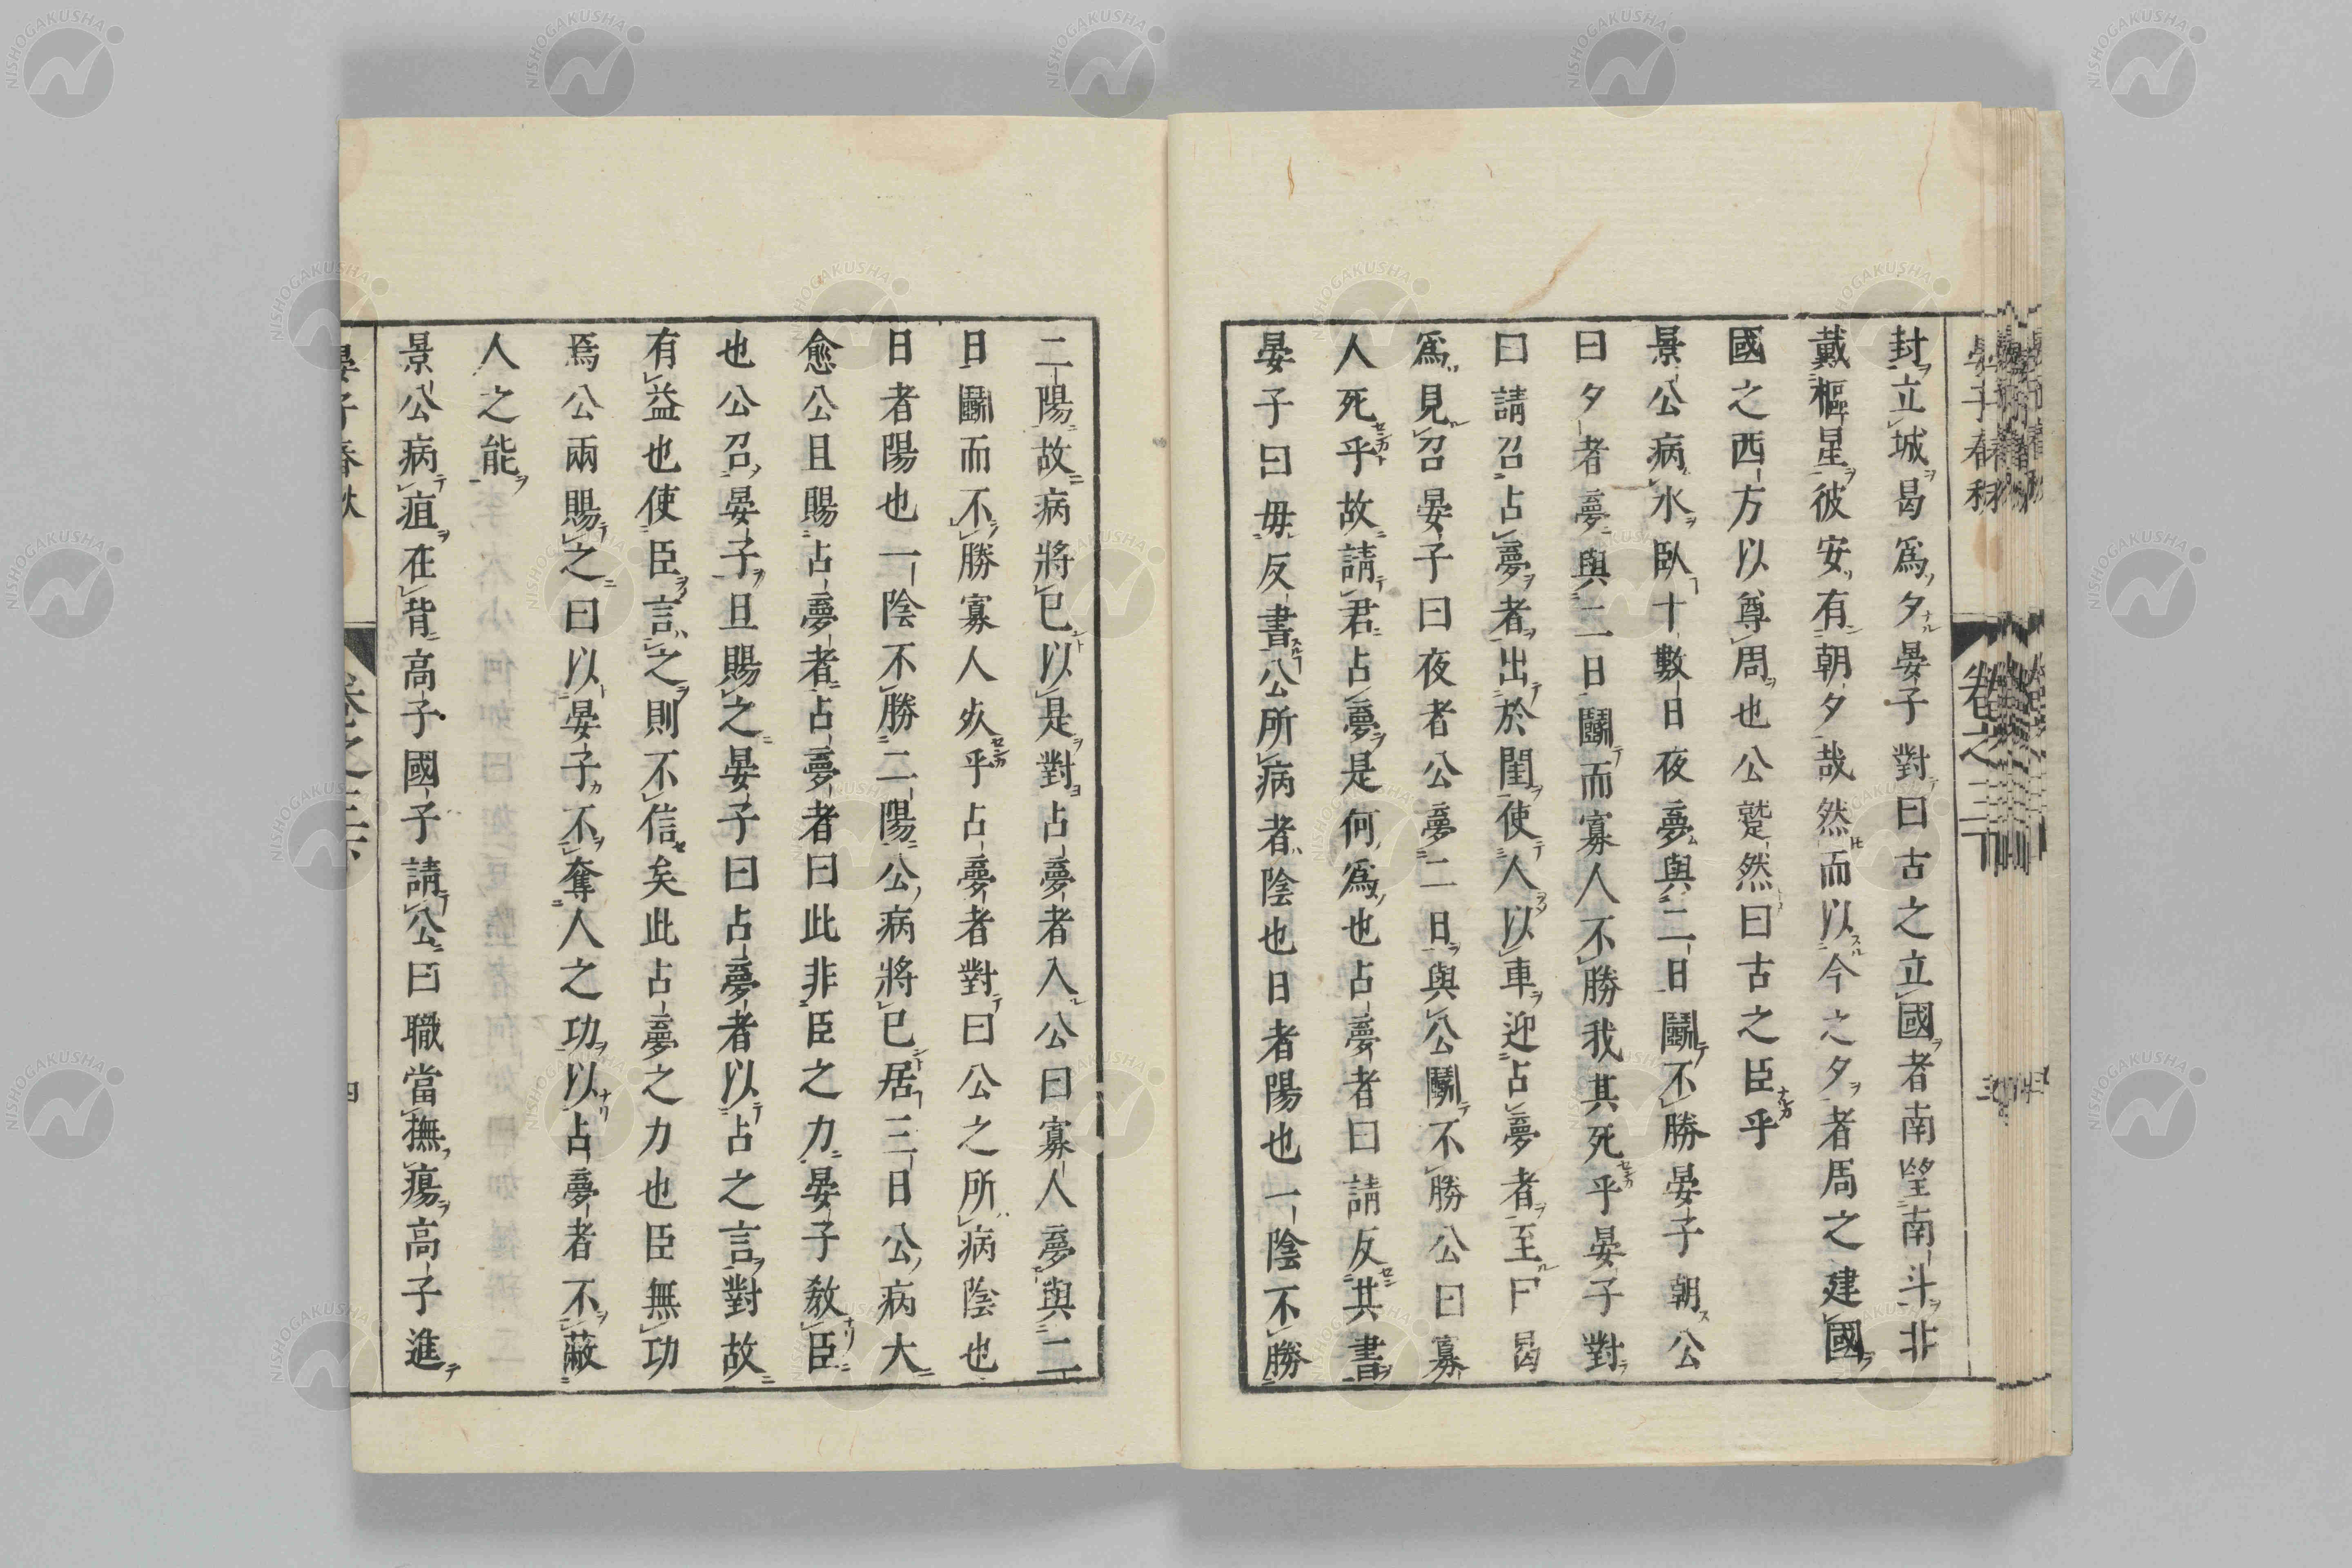 封立城曷爲夕晏子對曰古之立國者南望南斗北
戴樞星彼安有朝夕哉然而以今之夕者周之建國
國之西方以尊周也公蹵然曰古之臣乎
景公病水臥十數日夜夢與二日鬭不勝晏子朝公
曰夕者夢與二日鬭而寡人不勝我其死乎晏子對
曰請召占夢者出於閨使人以車迎占夢者至曰曷
爲見召晏子曰夜者公夢二日與公鬭不勝公曰寡
人死乎故請君占夢是何爲也占夢者曰請反其書
晏子曰毋反書公所病者陰也日者陽也一陰不勝
二陽故病將已以是對占夢者入公曰寡人夢與二
日鬭而不勝寡人死乎占夢者對曰公之所病陰也
日者陽也一陰不勝二陽公病將已居三日公病大
愈公且賜占夢者占夢者曰此非臣之力晏子敎臣
也公召晏子且賜之晏子曰占夢者以占之言對故
有益也使臣言之則不信矣此占夢之力也臣無功
焉公兩賜之曰以晏子不奪人之功以占夢者不蔽
人之能
景公病疽在背高子國子請公曰職當撫瘍高子進
晏子春秋 卷之六 四